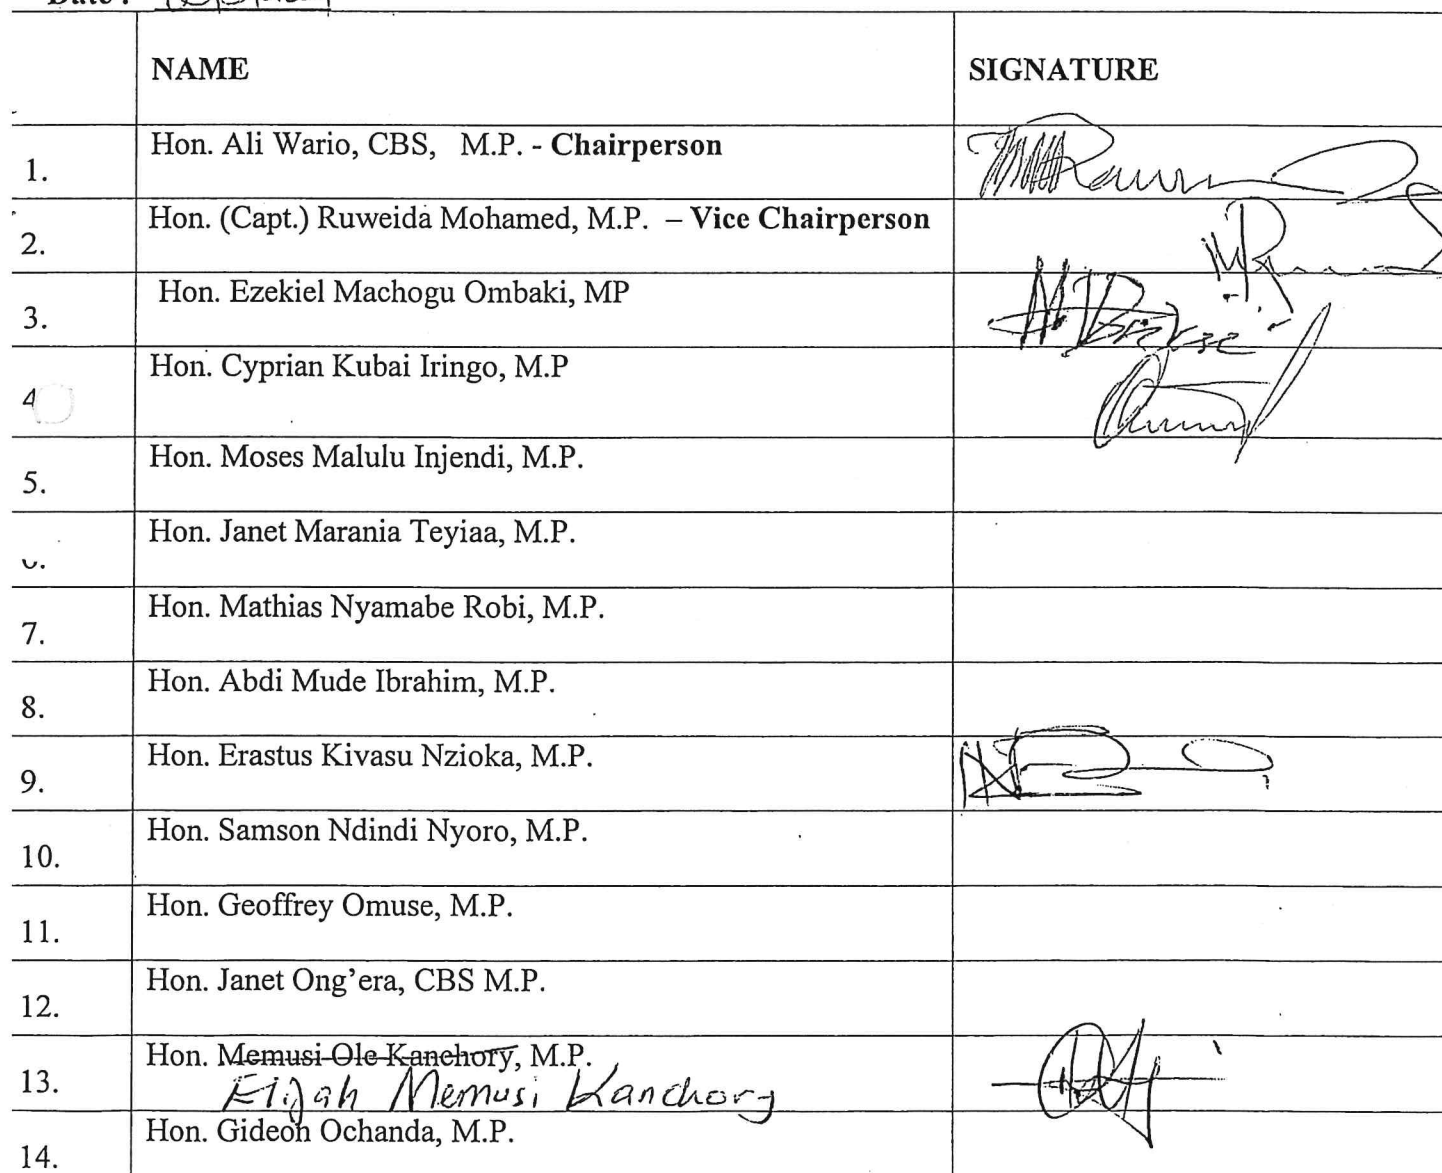 Date :
NAME SIGNATURE
1. Hon. Ali Wario, CBS, M.P. - Chairperson
2. Hon. (Capt.) Ruweida Mohamed, M.P. – Vice Chairperson
3. Hon. Ezekiel Machogu Ombaki, MP
4 Hon. Cyprian Kubai Iringo, M.P
5. Hon. Moses Malulu Injendi, M.P.
Hon. Janet Marania Teyiaa, M.P.
7. Hon. Mathias Nyamabe Robi, M.P.
8. Hon. Abdi Mude Ibrahim, M.P.
9. Hon. Erastus Kivasu Nzioka, M.P.
10. Hon. Samson Ndindi Nyoro, M.P.
11. Hon. Geoffrey Omuse, M.P.
12. Hon. Janet Ong’era, CBS M.P.
13. Hon. Memusi Ole Kanchory, M.P.
Elijah Memusi Kanchory
14. Hon. Gideon Ochanda, M.P.